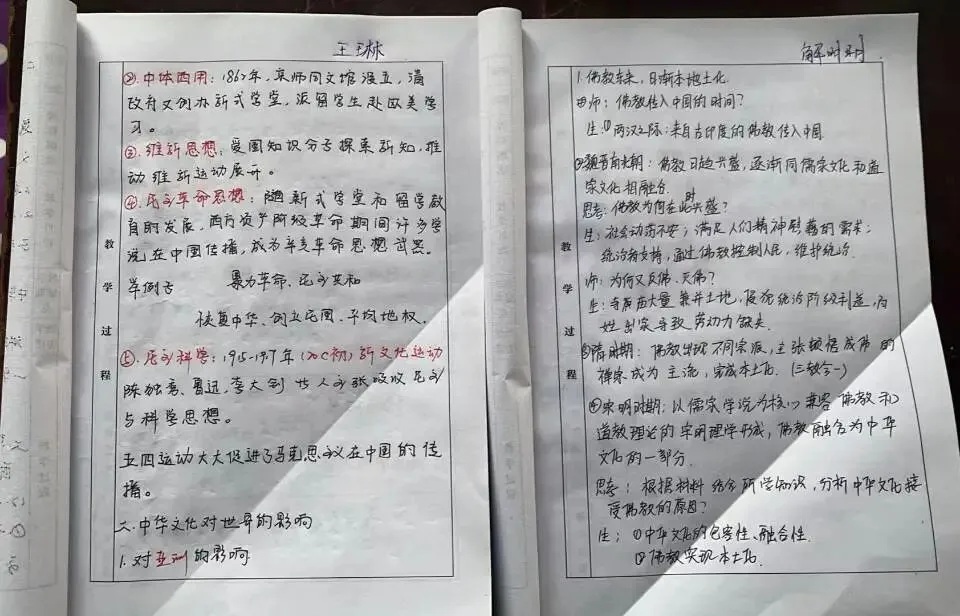 王琳
②.中体西用：1862年，京师同文馆设立，清
政府又创办新式学堂，派留学生赴欧美学
习。
③.维新思想：爱国知识分子探索新知，推
动维新运动展开。
④.民主革命思想：随新式学堂和留学教
育的发展，西方资产阶级革命期间许多学
说在中国传播，成为辛亥革命思想武器。
举例子 暴力革命、民主共和
恢复中华、创立民国、平均地权.
⑤.民主科学：1915-1917年(20C初)新文化运动
陈独秀、鲁迅、李大钊等人主张吸收民主
与科学思想。
五四运动大大促进了马克思主义在中国的传
播。
二.中华文化对世界的影响
1.对亚洲的影响
教学过程
解时时
1.佛教东来，日渐本地土化.
师：佛教传入中国的时间？
生：①两汉之际：来自古印度的佛教传入中国
②魏晋南北朝：佛教日趋兴盛，逐渐同儒家文化和道
家文化相融合.
思考：佛教为何在此时兴盛？
生：社会动荡不安；满足人们精神慰藉的需求；
统治者支持，通过佛教控制人民，维护统治.
师：为何又反佛、灭佛？
生：寺庙大量兼并土地，侵犯统治阶级利益，百
姓出家导致劳动力缺失.
③隋唐时期：佛教出现不同宗派，主张顿悟成佛的
禅宗成为主流，完成本土化.(三教合一)
④宋明时期：以儒家学说为核心兼容佛教和
道教理论的宋明理学形成，佛教融合为中华
文化的一部分.
思考：根据材料结合所学知识，分析中华文化接
受佛教的原因？
生：①中华文化的包容性、融合性.
②佛教实现本土化.
教学过程